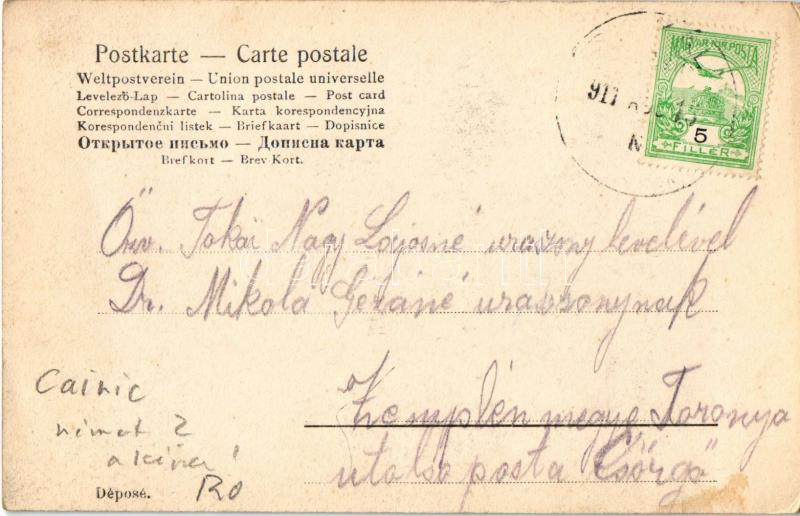 Postkarte — Carte postale
Weltpostverein — Union postale universelle
Levelező-Lap — Cartolina postale — Post card
Correspondenzkarte — Karta korespondencyjna
Korespondenčni listek — Briefkaart — Dopisnice
Открытое письмо — Дописна карта
Brefkort — Brev Kort.
911
MAGYAR KIR. POSTA
5
FILLÉR
Özv. Tokai Nagy Lajosné uraszony levelével
Dr. Mikola Gézáné uraszonynak
Zemplén megye Toronya
utolso posta Csörgő
német 2
Déposé.
darabanth